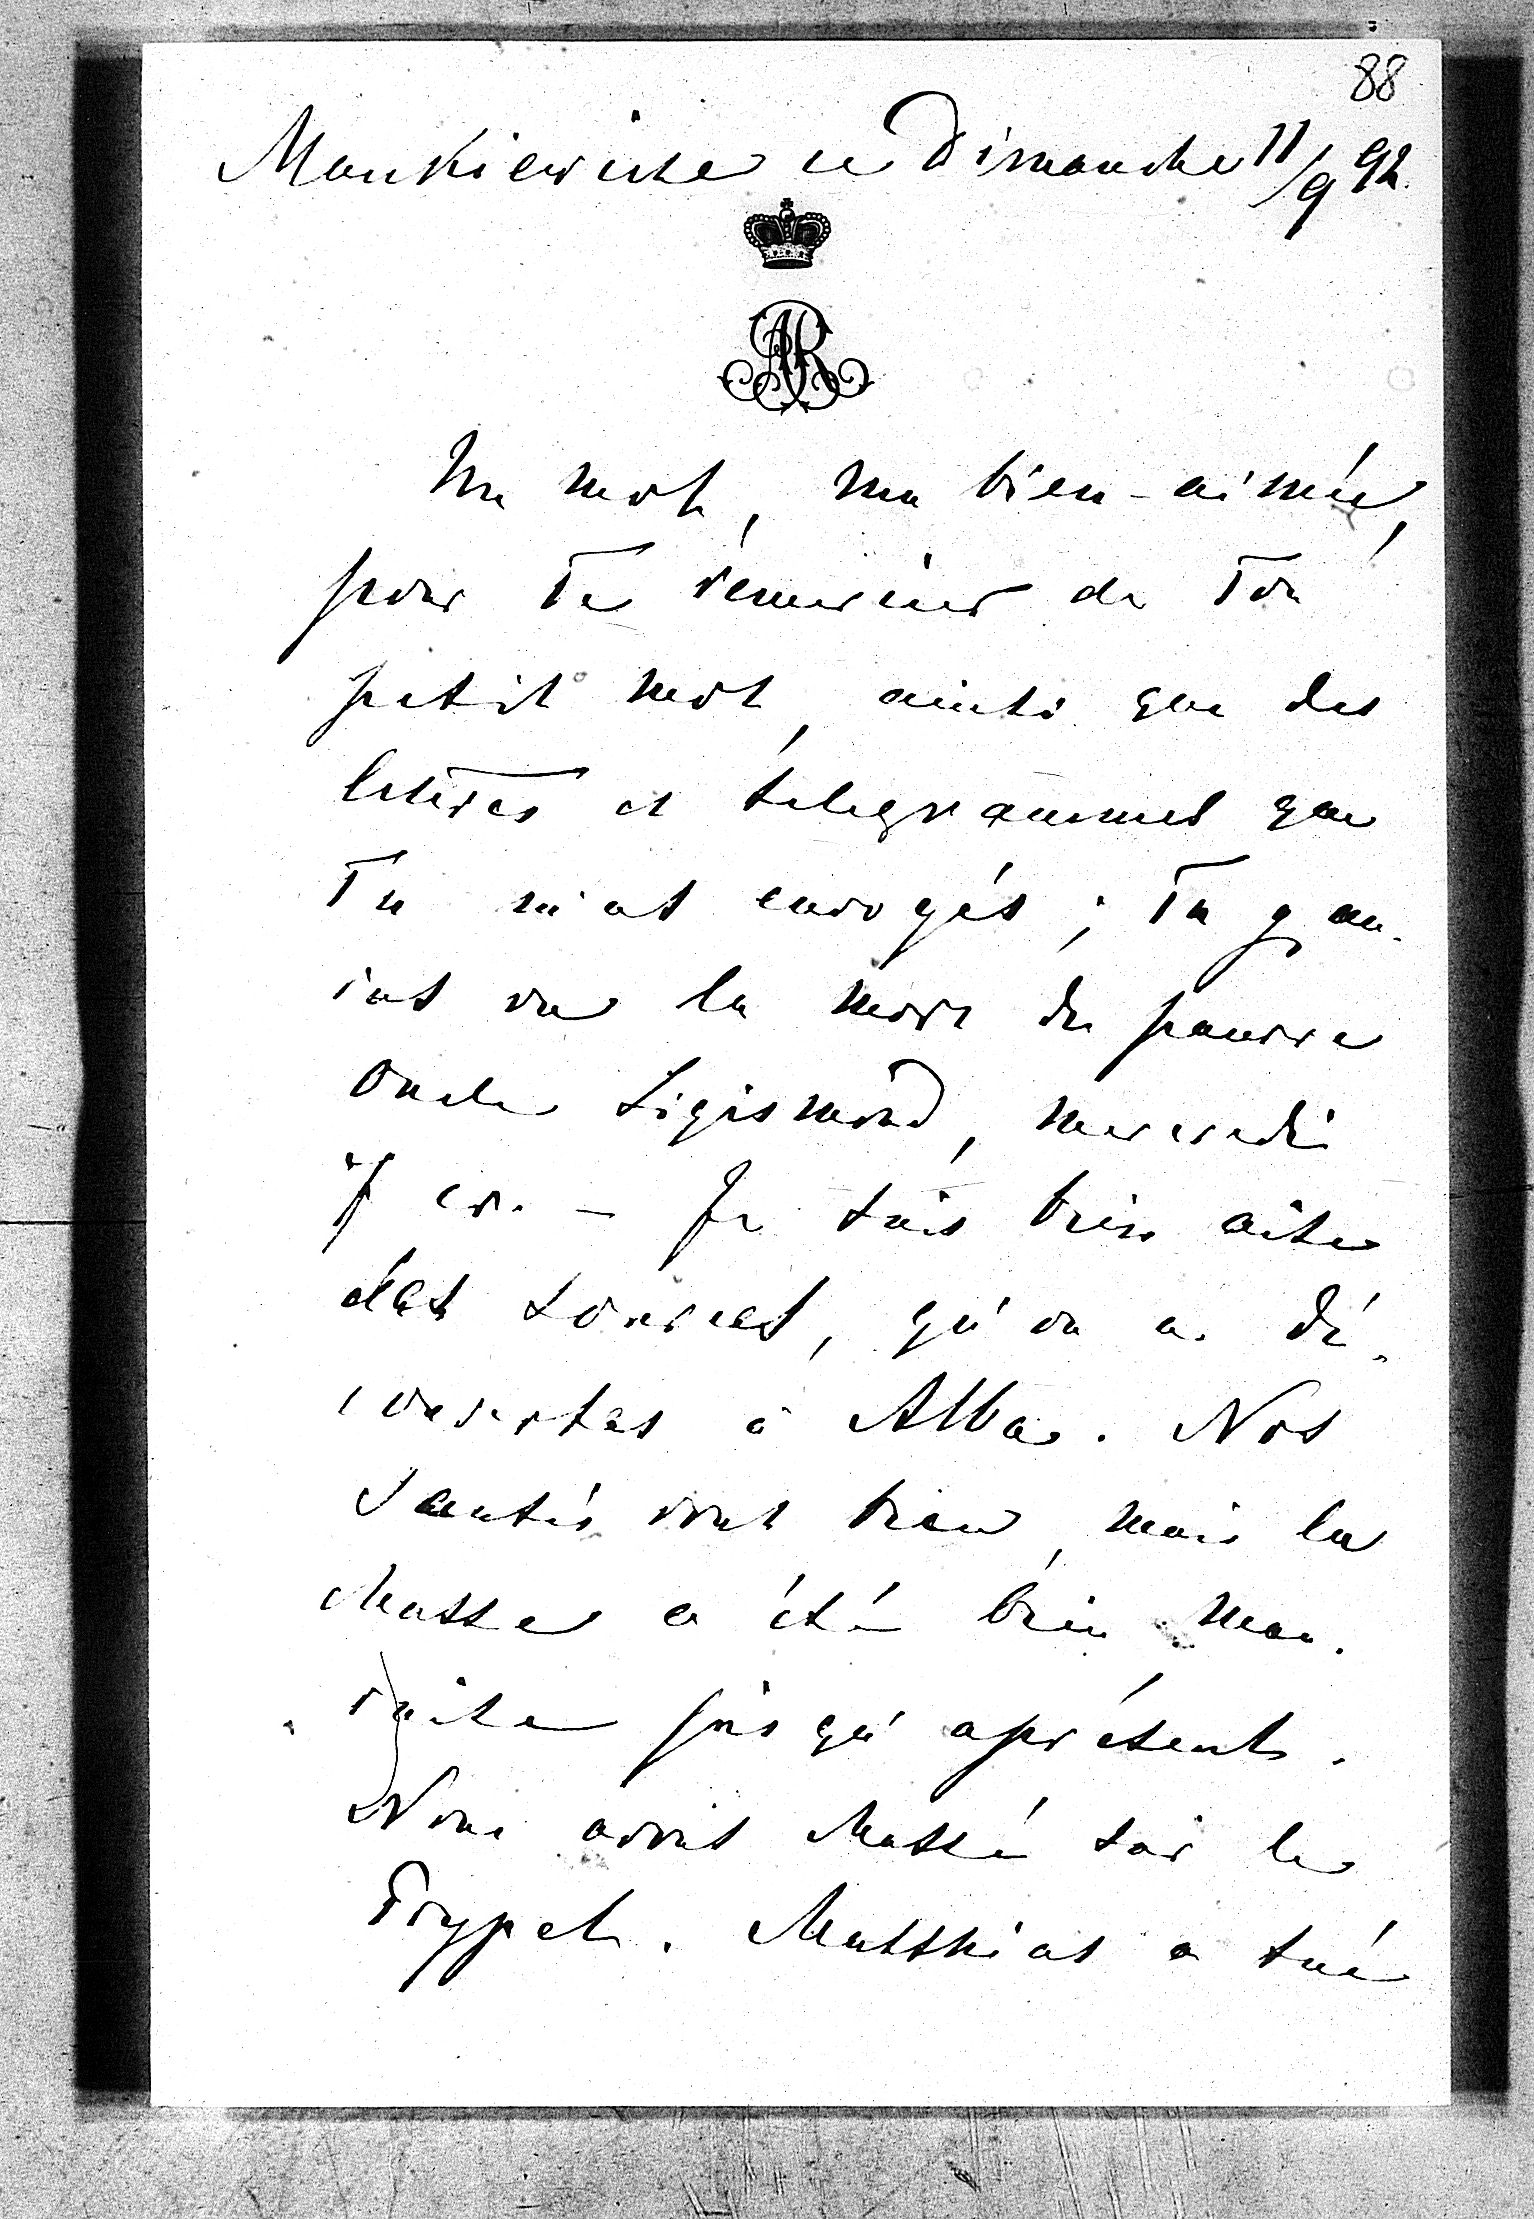 88
Mankiewicze ce Dimanche 11/9 92.
AR
Un mot, ma bien-aimée,
pour Te remercier de Ton
petit mot, ainsi que des
lettres et télegrammes que
Tu m'as envoyés; Tu y au-
ras vu la mort du pauvre
oncle Sigismond, mercredi
7 cr. – Je suis bien aise
des sources, qu'on a dé-
couvertes à Alba. Nos
santés vont bien, mais la
chasse a été bien mau-
vaise jusqu'à présent.
Nous avons chassé sur le
Prypet. Matthias a tué